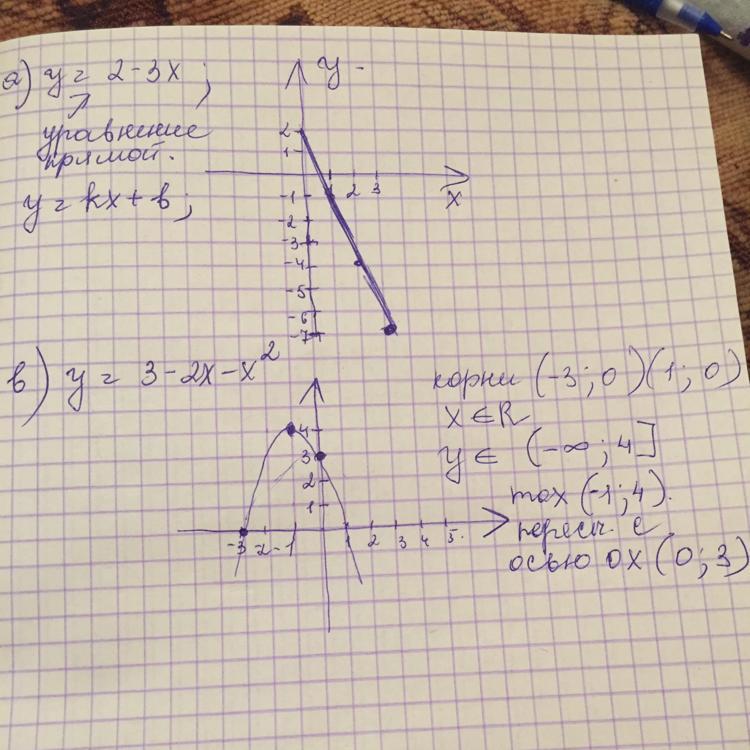 а) y = 2-3x ;
уравнение
прямой.
y = kx + b ;
y
2
1
1 2 3
x
-1
-2
-3
-4
-5
-6
-7
в) y = 3-2x-x²
корни (-3; 0)(1; 0)
x ∈ R
y ∈ (-∞; 4]
max (-1; 4).
пересч. с
осью ox (0; 3)
4
3
2
1
-3 -2 -1 1 2 3 4 5